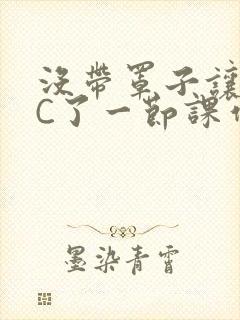 没帶罩子讓
C了一節課
墨染青霄